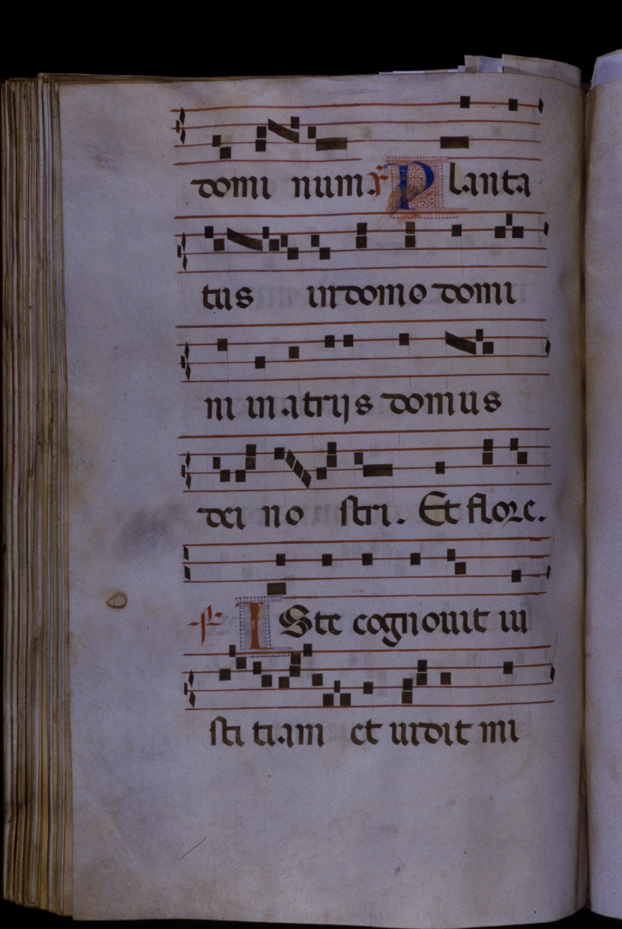 domi num. ℣ Planta
tus in domo domi
ni in atrijs domus
dei no stri. Et flore.
Iste cognouit iu
sti tiam et uidit mi